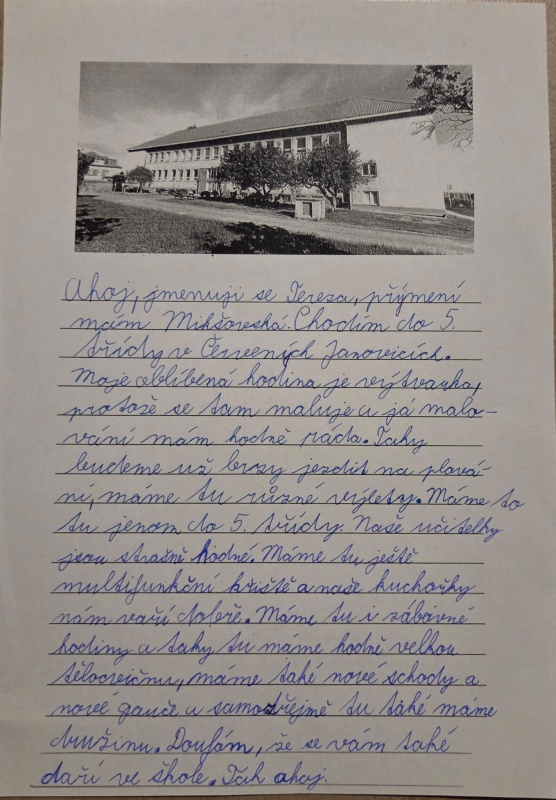 Ahoj, jmenuji se Tereza, přýmení
mám Mikšovská. Chodím do 5.
třídy v Červených Janovicích.
Moje oblíbená hodina je výtvarka,
protože se tam maluje a já malo-
vání mám hodně ráda. Taky
budeme už brzy jezdit na plavá-
ní, máme tu různé výlety. Máme to
tu jenom do 5. třídy. Naše učitelky
jsou strašně hodné. Máme tu ještě
multifunkční hřiště a naše kuchařky
nám vaří dobře. Máme tu i zábavné
hodiny a taky tu máme hodně velkou
tělocvičnu, máme také nové schody a
nové gauče a samozřejmě tu také máme
družinu. Doufám, že se vám také
daří ve škole. Tak ahoj.